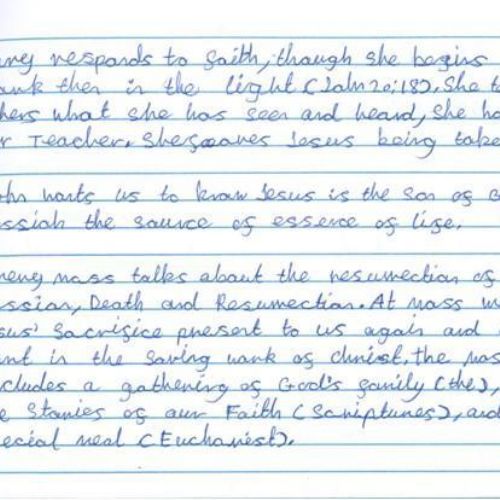 ary responds to faith, though she begins
ank then in the light (John 20:18). She t
hers what she has seen and heard, she ha
r Teacher. She leaves Jesus being take
ohn wants us to know Jesus is the son of G
essiah the source of essence of life.
meny mass talks about the resurrection of
assion, Death and Resurrection. At mass w
sus' sacrifice present to us again and
ant in the saving work of christ. the mas
cludes a gathering of God's family (the),
e stories of our Faith (Scriptures), and
pecial meal (Eucharist).